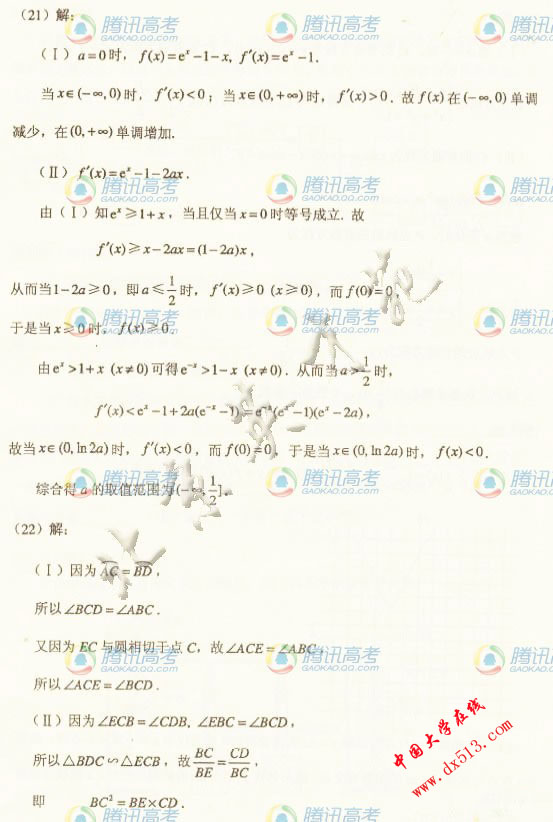 (21)解：
(Ⅰ) a=0时，f(x)=eˣ-1-x, f′(x)=eˣ-1.
当x∈(-∞,0)时，f′(x)<0；当x∈(0,+∞)时，f′(x)>0. 故f(x)在(-∞,0)单调
减少，在(0,+∞)单调增加.
(Ⅱ) f′(x)=eˣ-1-2ax.
由(Ⅰ)知eˣ≥1+x，当且仅当x=0时等号成立. 故
f′(x)≥x-2ax=(1-2a)x，
从而当1-2a≥0，即a≤1/2时，f′(x)≥0 (x≥0)，而f(0)=0，
于是当x≥0时，f(x)≥0.
由eˣ>1+x (x≠0)可得e⁻ˣ>1-x (x≠0). 从而当a>1/2时，
f′(x)<eˣ-1+2a(e⁻ˣ-1)=e⁻ˣ(eˣ-1)(eˣ-2a)，
故当x∈(0,ln2a)时，f′(x)<0，而f(0)=0，于是当x∈(0,ln2a)时，f(x)<0.
综合得a的取值范围为(-∞,1/2].
(22)解：
(Ⅰ)因为AC=BD，
所以∠BCD=∠ABC.
又因为EC与圆相切于点C，故∠ACE=∠ABC，
所以∠ACE=∠BCD.
(Ⅱ)因为∠ECB=∠CDB, ∠EBC=∠BCD，
所以△BDC∽△ECB，故BC/BE=CD/BC，
即 BC²=BE×CD.
腾讯高考
GAOKAO.QQ.COM
中国大学在线
www.dx513.com